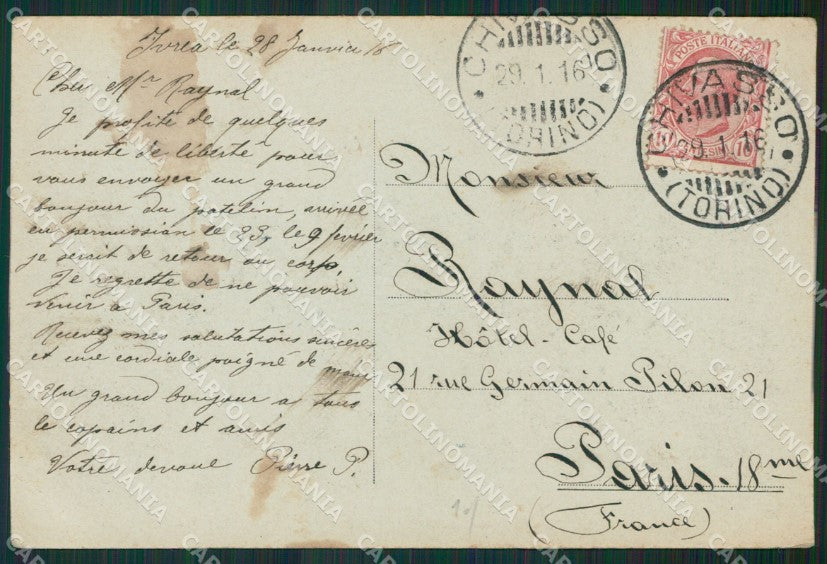 Ivrea le 28 Janvier 16
Cher Mr Raynal
Je profite de quelques
minute de liberté pour
vous envoyer un grand
bonjour du patelin, arrivée
en permission le 23, le 9 fevrier
je serait de retour au corps,
Je regrette de ne pouvoir
venir a Paris.
Recevez mes salutations sincères
et une cordiale poigné de main
Un grand bonjour a tous
le copains et amis
Votre devoué Pierre P.
CHIVASSO
29.1.16
(TORINO)
POSTE ITALIANE
CHIVASSO
29.1.16
(TORINO)
Monsieur
Raynal
Hôtel-Café
21 rue Germain Pilon 21
Paris. 18me
(France)
10/
CARTOLINOMANIA